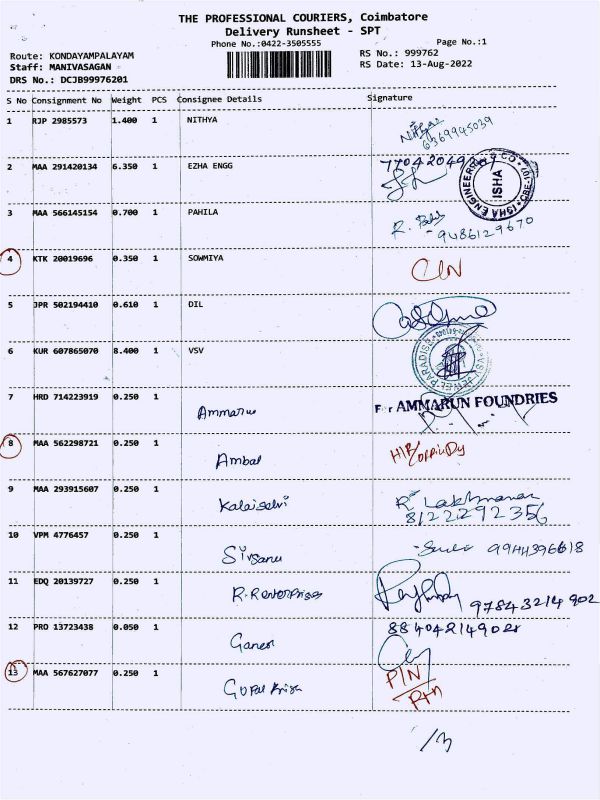 THE PROFESSIONAL COURIERS, Coimbatore
Delivery Runsheet - SPT
Phone No.:0422-3505555
Page No.:1
Route: KONDAYAMPALAYAM
RS No.: 999762
Staff: MANIVASAGAN
RS Date: 13-Aug-2022
DRS No.: DCJB99976201
S No Consignment No Weight PCS Consignee Details Signature
1 RJP 2985573 1.400 1 NITHYA
6369945039
2 MAA 291420134 6.350 1 EZHA ENGG
ISHA ENGINEERING CO
ISHA
3 MAA 566145154 0.700 1 PAHILA
- 9486129670
4 KTK 20019696 0.350 1 SOWMIYA
C/N
5 JPR 502194410 0.610 1 DIL
6 KUR 607865070 8.400 1 VSV
VSV JEWEL PARADISE
7 HRD 714223919 0.250 1 Ammarun
For AMMARUN FOUNDRIES
8 MAA 562298721 0.250 1 Ambal
9 MAA 293915607 0.250 1 Kalaiselvi
R Lakshmanan
8122292356
10 VPM 4776457 0.250 1
9944396618
11 EDQ 20139727 0.250 1 R.R enterprises
97843214902
12 PRO 13723438 0.050 1 Ganesh
13 MAA 567627077 0.250 1 Gopal Krish
P/N
Rtn
/13